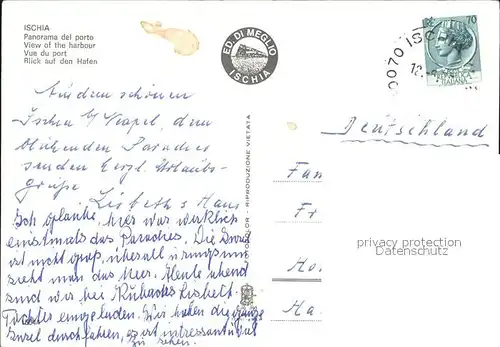 ISCHIA
Panorama del porto
View of the harbour
Vue du port
Blick auf den Hafen
ED. DI MEGLIO
ISCHIA
70
80070 ISC
12.
ITALIANA
RIPRODUZIONE VIETATA
Deutschland
Aus dem schönen
Ischia b/ Neapel, dem
blühenden Paradies
senden herzl. Urlaubs-
grüße
Lisbeth & Hans
Ich glaube, hier war wirklich
einstmals das Paradies. Die Insel
ist nicht groß, überall ringsum
sieht man das Meer. Heute abend
sind wir bei Lisbeth
Tochter eingeladen. Wir haben die ganze
Insel durchfahren, es ist interessant
zu sehen.
Fam
Fr
Ho
Ha
privacy protection
Datenschutz